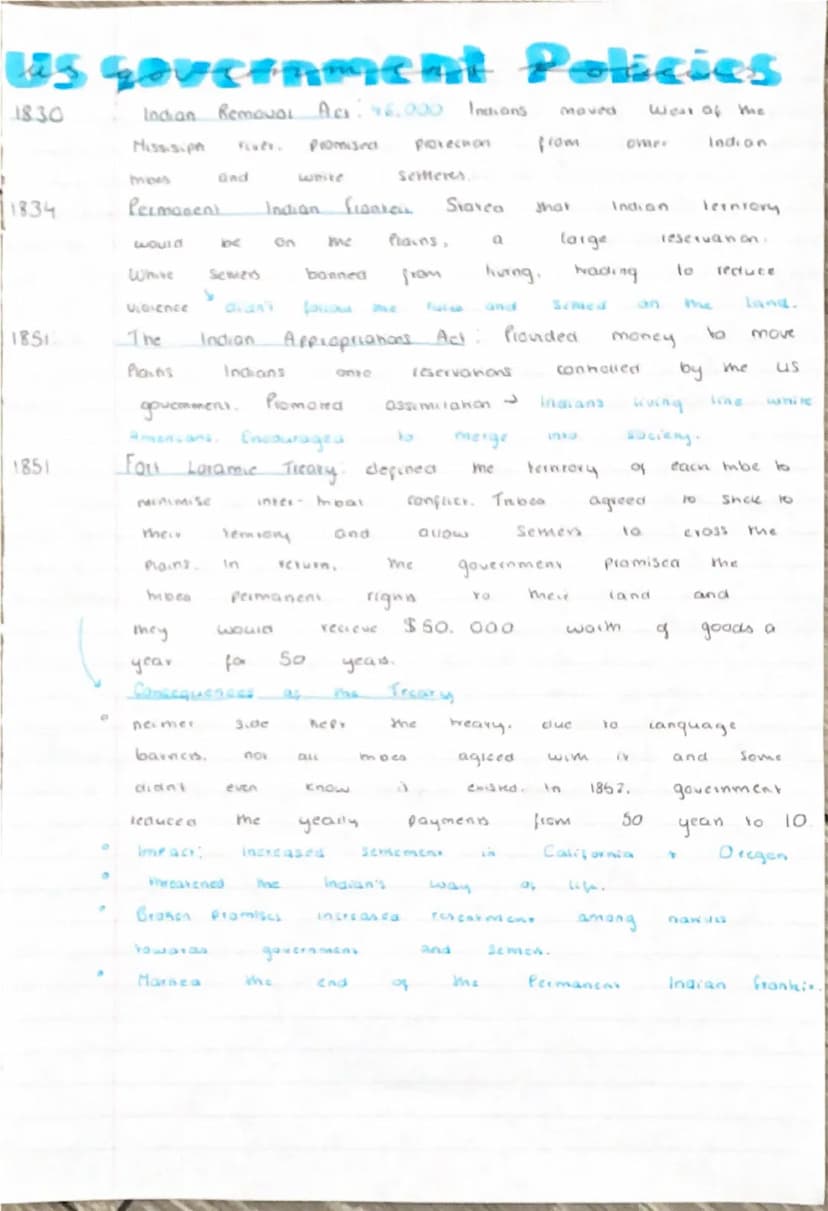 US government Policies
1830 Indian Removal Act: 46,000 Indians moved West of the
Mississipi river. Promised protection from other Indian
tribes and white settlers.
1834 Permanent Indian frontier Stated that Indian territory
would be on the Plains, a large reservation.
White settlers banned from living, trading to reduce
violence ↘ didn't follow the rules and settled on the land.
1851 The Indian Appropriations Act: Provided money to move
Plains Indians onto reservations controlled by the US
government. Promoted assimilation → Indians living like white
Americans. Encouraged to merge into society.
1851 Fort Laramie Treaty: defined the territory of each tribe to
minimise inter-tribal conflict. Tribes agreed to stick to
their territory and allow settlers to cross the
Plains. In return, the government promised the
tribes permanent rights to their land and
they would recieve $50,000 worth of goods a
year for 50 years.
Consequences of the Treaty
° neither side kept the treaty. due to language
barriers, not all tribes agreed with it and some
didn't even know it existed. In 1852, government
reduced the yearly payments from 50 years to 10.
° Impact: increased settlement in California + Oregon
° threatened the Indian's way of life.
° Broken promises increased resentment among natives
towards government and settlers.
° Marked the end of the Permanent Indian frontier.